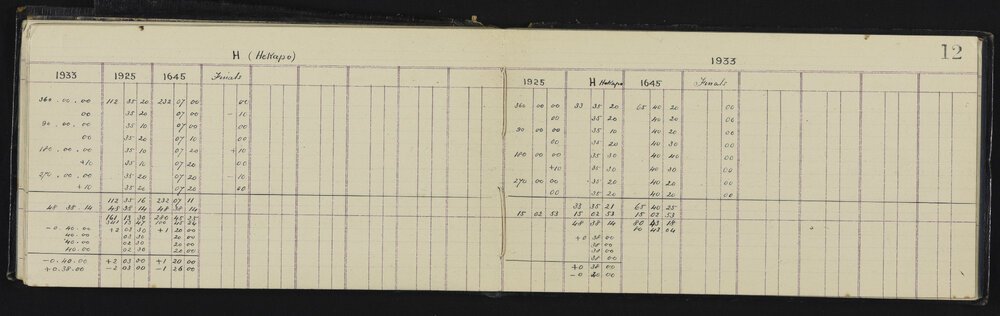 12
H (HeKapo)
1933 1925 1645 Finals
360 . 00 . 00 112 35 20 232 07 00 00
00 35 20 07 00 - 10
90 . 00 . 00 35 10 07 00 00
00 35 20 07 10 00
180 . 00 . 00 35 10 07 20 + 10
+10 35 10 07 20 00
270 . 00 . 00 35 20 07 20 - 10
+ 10 35 20 07 20 00
112 35 16 232 07 11
48 38 . 14 48 38 14 48 38 14
161 13 30 280 45 25
- 0 . 40 . 00 +2 03 00 +1 20 00
40 . 00 03 30 20 00
40 . 00 02 30 20 00
40 . 00 02 30 20 00
- 0 . 40 . 00 +2 03 00 +1 20 00
+ 0 . 38 . 00 - 2 03 00 - 1 26 00
1933
1925 H HeKapo 1645 Finals
360 00 00 33 35 20 65 40 20 00
00 35 20 40 20 00
90 00 00 35 10 40 20 00
00 35 20 40 30 00
180 00 00 35 30 40 40 00
+10 35 30 40 30 00
270 00 00 35 20 40 20 00
00 35 20 40 20 00
33 35 21 65 40 25
15 02 53 15 02 53 15 02 53
48 38 14 80 43 18
80 43 04
+0 38 00
38 00
38 00
38 00
+0 38 00
- 0 40 00